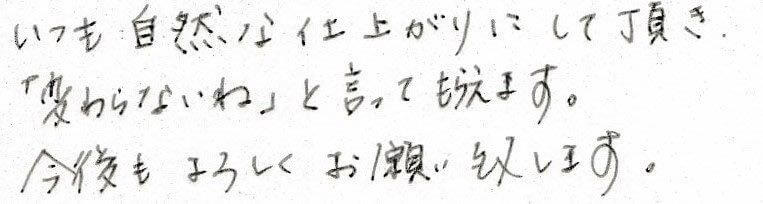 いつも自然な仕上がりにして頂き、
「変わらないね」と言ってもらえます。
今後もよろしくお願い致します。